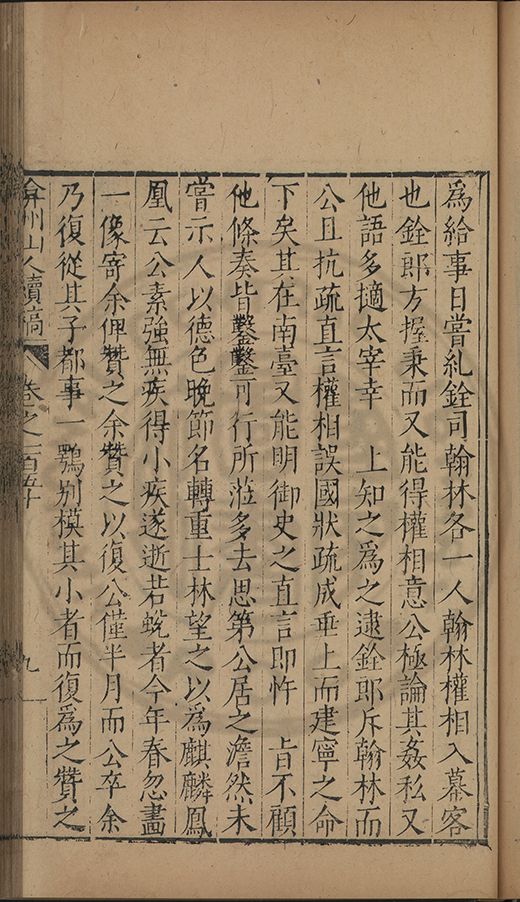 爲給事日嘗糾銓司翰林各一人翰林權相入幕客
也銓郎方握秉而又能得權相意公極論其姦私又
他語多擿太宰幸　上知之爲之逮銓郎斥翰林而
公且抗疏直言權相誤國狀疏成垂上而建寧之命
下矣其在南臺又能明御史之直言即忤　旨不顧
他條奏皆鑿鑿可行所蒞多去思第公居之澹然未
嘗示人以德色晚節名轉重士林望之以爲麒麟鳳
凰云公素強無疾得小疾遂逝若蛻者今年春忽畫
一像寄余俾贊之余贊之以復公僅半月而公卒余
乃復從其子都事一鶚別模其小者而復爲之贊之
弇州山人續稿 卷之一百五十 九